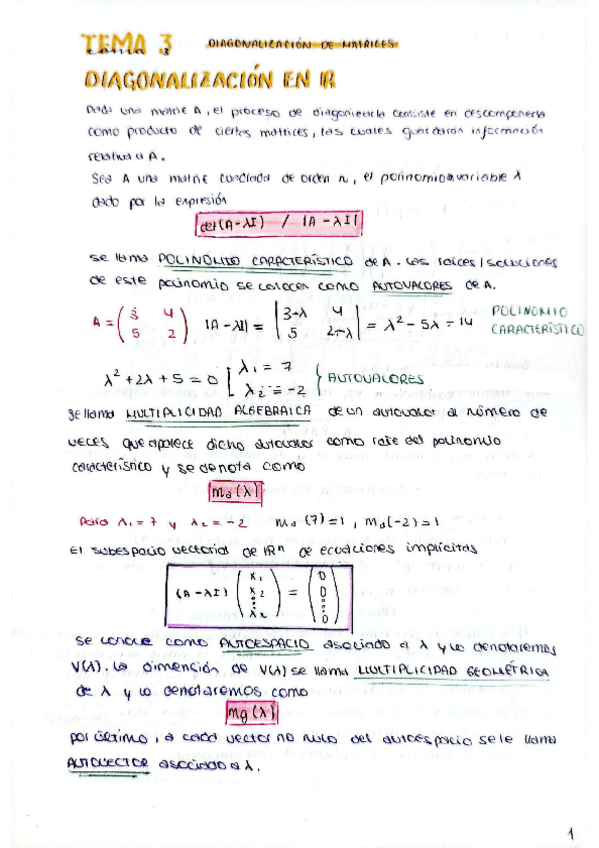 TEMA 3 DIAGONALIZACIÓN DE MATRICES
DIAGONALIZACIÓN EN IR
Dada una matriz A, el proceso de diagonalizarla consiste en descomponerla
como producto de ciertas matrices, las cuales guardarán información
relativa a A.
Sea A una matriz cuadrada de orden n, el polinomio variable λ
dado por la expresión
det(A-λI) / |A-λI|
se llama POLINOMIO CARACTERÍSTICO de A. Las raíces/soluciones
de este polinomio se conocen como AUTOVALORES de A.
A = (3 4 / 5 2) |A-λI| = |3-λ 4 / 5 2-λ| = λ² - 5λ - 14 POLINOMIO CARACTERÍSTICO
λ² + 2λ + 5 = 0 [ λ₁ = 7
λ₂ = -2 } AUTOVALORES
Se llama MULTIPLICIDAD ALGEBRAICA de un autovalor al número de
veces que aparece dicho autovalor como raíz del polinomio
característico y se denota como
ma(λ)
Para λ₁ = 7 y λ₂ = -2 ma(7) = 1, ma(-2) = 1
El subespacio vectorial de IRⁿ de ecuaciones implícitas
(A-λI) (x₁ x₂ ⋮ xn) = (0 0 ⋮ 0)
se conoce como AUTOESPACIO asociado a λ y lo denotaremos
V(λ). La dimensión de V(λ) se llama MULTIPLICIDAD GEOMÉTRICA
de λ y lo denotaremos como
mg(λ)
por último, a cada vector no nulo del autoespacio se le llama
AUTOVECTOR asociado a λ.
1